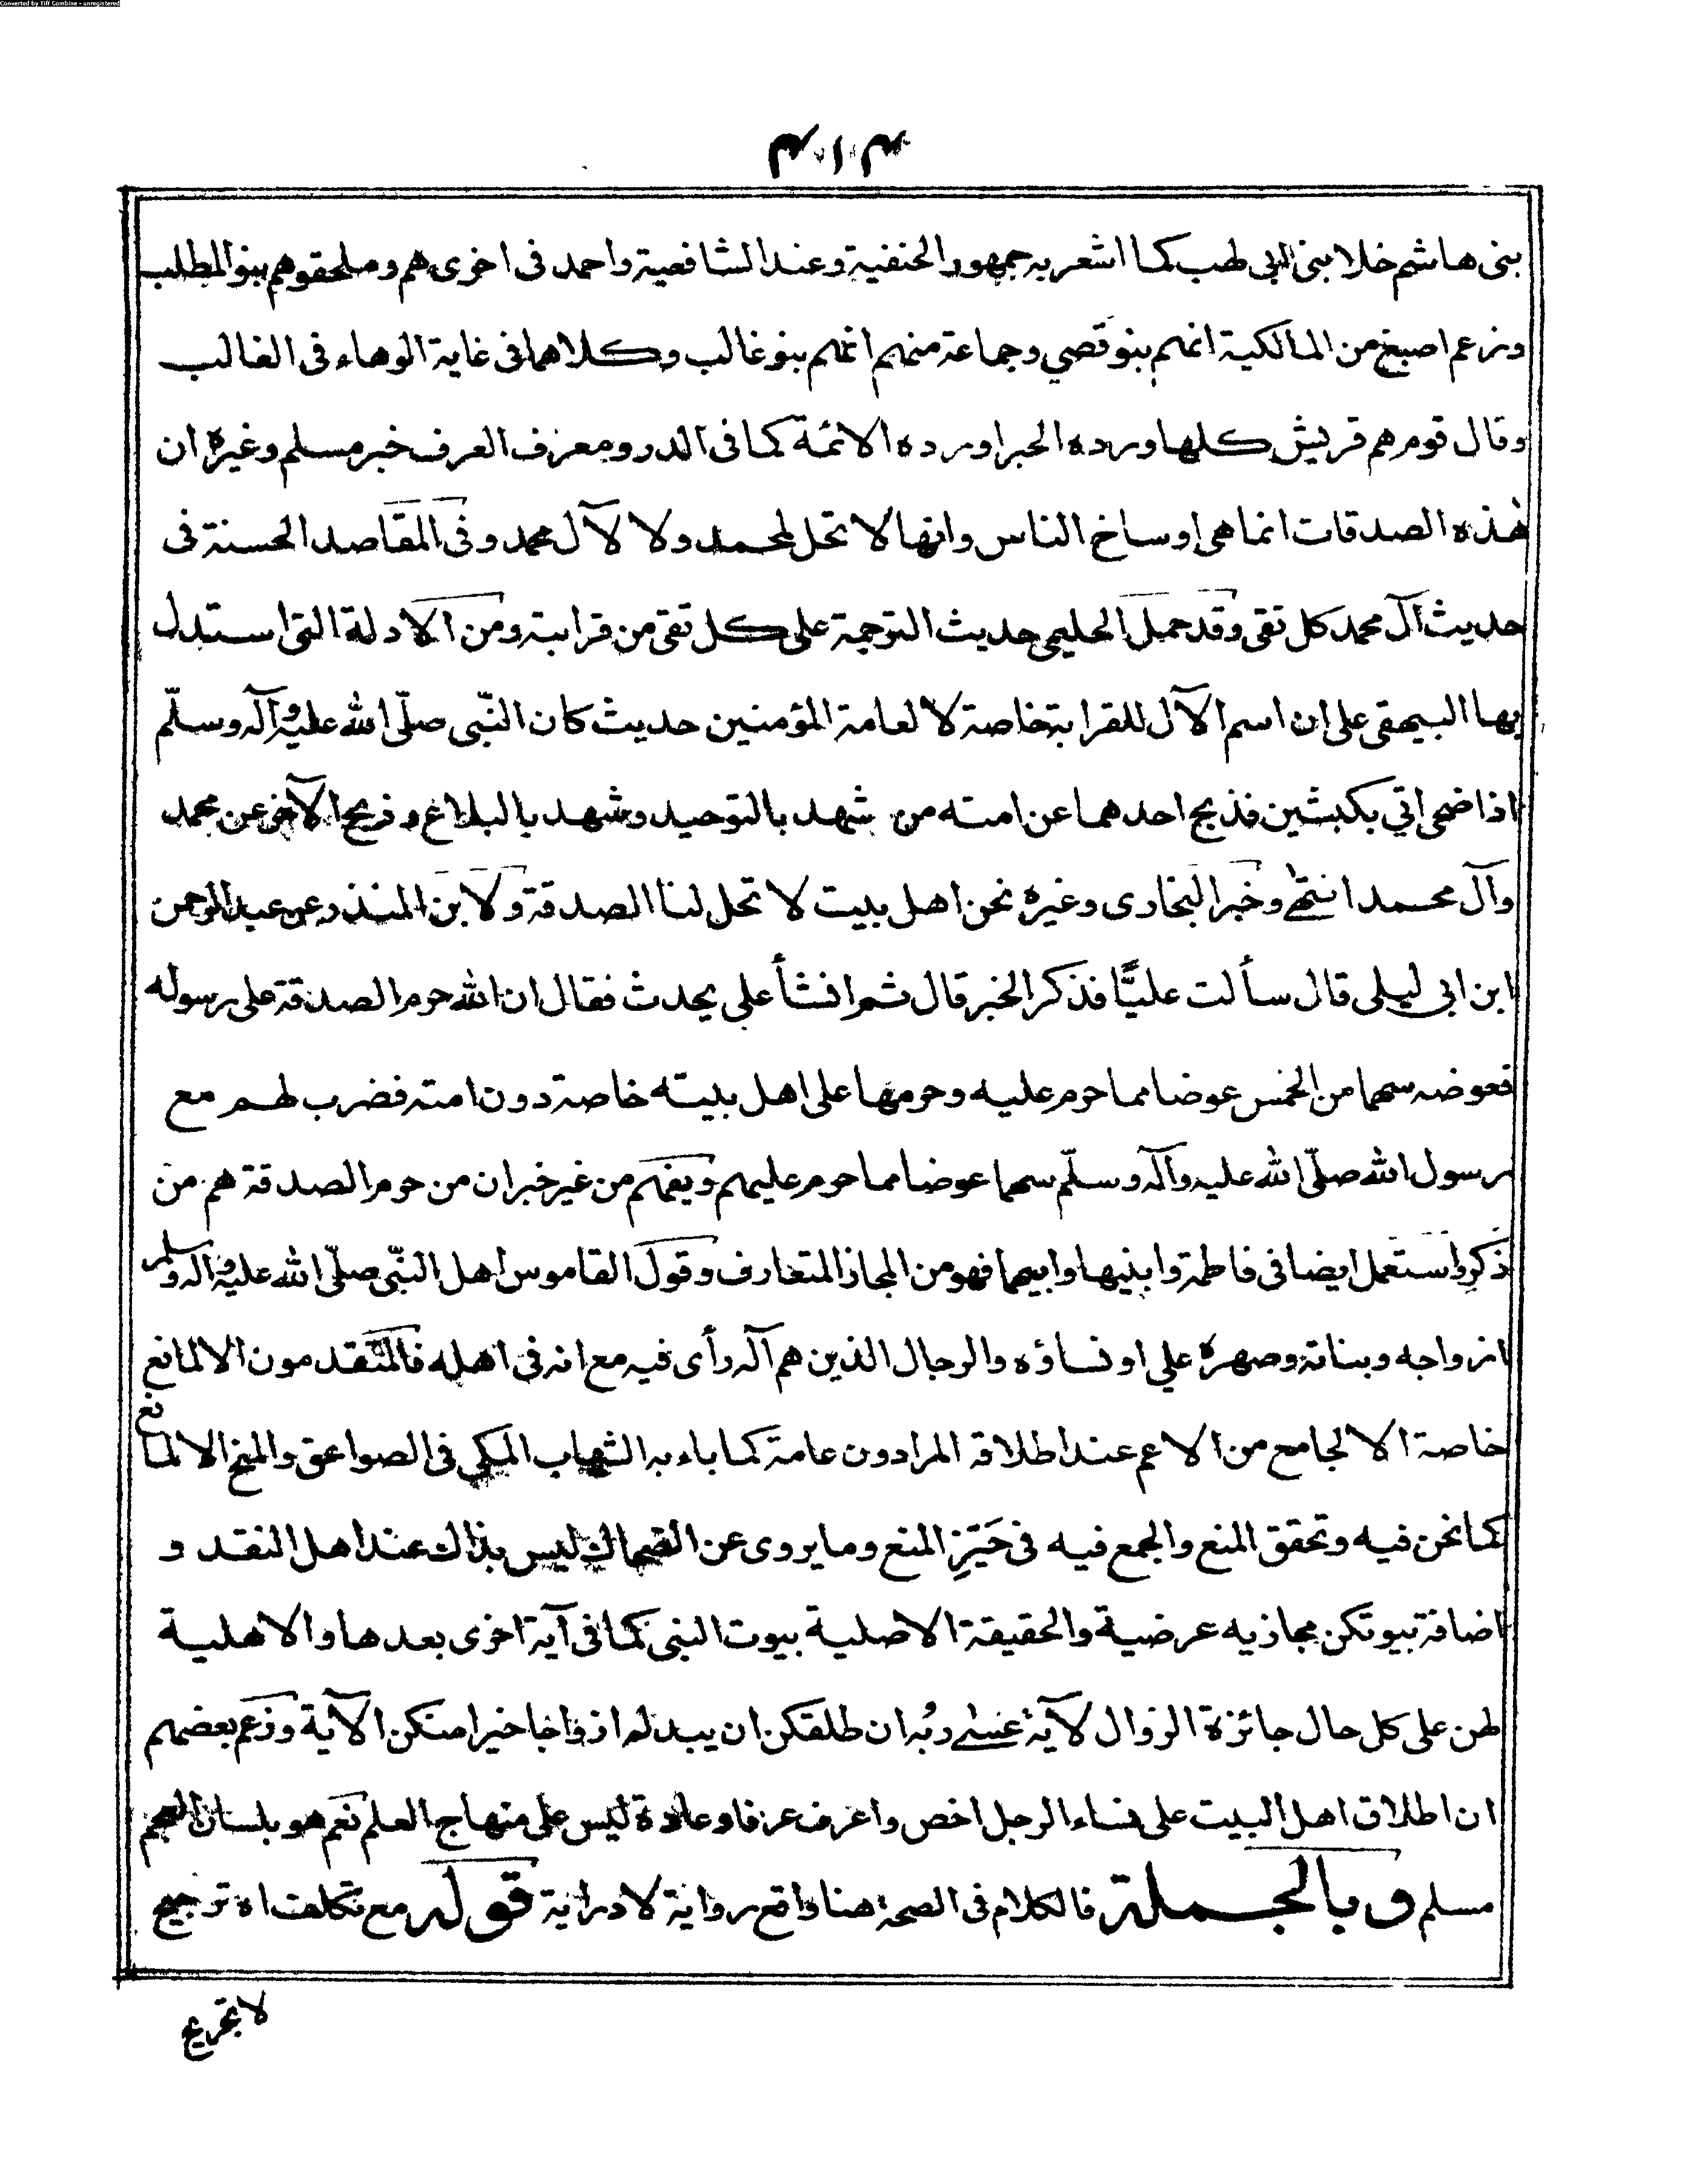 Converted by Tiff Combine - unregistered
بنى هاشم خلا بنى ابى لهب كما اشعر به جمهور الحنفية وعند الشافعية واحمد فى اخرى هم وملحقوهم بنو المطلب
وزعم اصبغ من المالكية انهم بنو قصي وجماعة منهم انهم بنو غالب وكلاهما فى غاية الوهاء فى الغالب
وقال قوم هم قريش كلها ورده الحبر اورده الائمة كما فى الدر ومعزف العرف خبر مسلم وغيره ان
هذه الصدقات انما هى اوساخ الناس وانها لا تحل لمحمد ولا لآل محمد وفى المقاصد الحسنة فى
حديث آل محمد كل تقى وقد حمل الحليمى حديث الترجمة على كل تقى من قرابته ومن الادلة التى استدل
بها البيهقى على ان اسم الآل للقرابة خاصة لا لعامة المؤمنين حديث كان النّبى صلّى الله عليه وآله وسلّم
اذا ضحى اتي بكبشين فذبح احدهما عن امته من شهد بالتوحيد وشهد بالبلاغ وذبح الآخر عن محمد
وآل محمد انتهى وخبر البخارى وغيره نحن اهل بيت لا تحل لنا الصدقة ولابن المنذر عن عبد الرحمن
ابن ابى ليلى قال سألت عليًّا فذكر الخبر قال ثم انشأ علي يحدث فقال ان الله حرم الصدقة على رسوله
فعوضه سهما من الخمس عوضا مما حرم عليه وحرمها على اهل بيته خاصة دون امته فضرب لهم مع
رسول الله صلّى الله عليه وآله وسلّم سهما عوضا مما حرم عليهم ويفهم من غير خبر ان من حرم الصدقة هم من
ذكر واستعمل ايضا فى فاطمة وابنيها وابيهما فهو من المجاز المتعارف وقول القاموس اهل النّبى صلّى الله عليه وآله وسلم
ازواجه وبناته وصهره علي او نساؤه والرجال الذين هم آله رأى فيه مع انه فى اهله فالمتقدمون الا لمانع
خاصة الا لجامع من الاعم عند اطلاقه المراد ون عامة كما باء به الشهاب المكي فى الصواعق والمنح الا لمانع
كما نحن فيه وتحقق المنع والجمع فيه فى حَيّزِ المنع وما يروى عن الضحاك ليس بذاك عند اهل النقد و
اضافة بيوتكن مجازيه عرضية والحقيقة الاصلية بيوت النبى كما فى آية اخرى بعدها والاهلية
لهن على كل حال جائزة الزوال لآية عسى ربُه ان طلقكن ان يبدله ازواجا خيرا منكن الآية وزعم بعضهم
ان اطلاق اهل البيت على نساء الرجل اخص واعرف عرفا وعادة ليس على منهاج العلم نعم هو بلسان العجم
مسلم وبالجملة فالكلام فى الصحة هنا واقع رواية لا دراية قوله مع تكلف اه ترجيح
لا تجريح